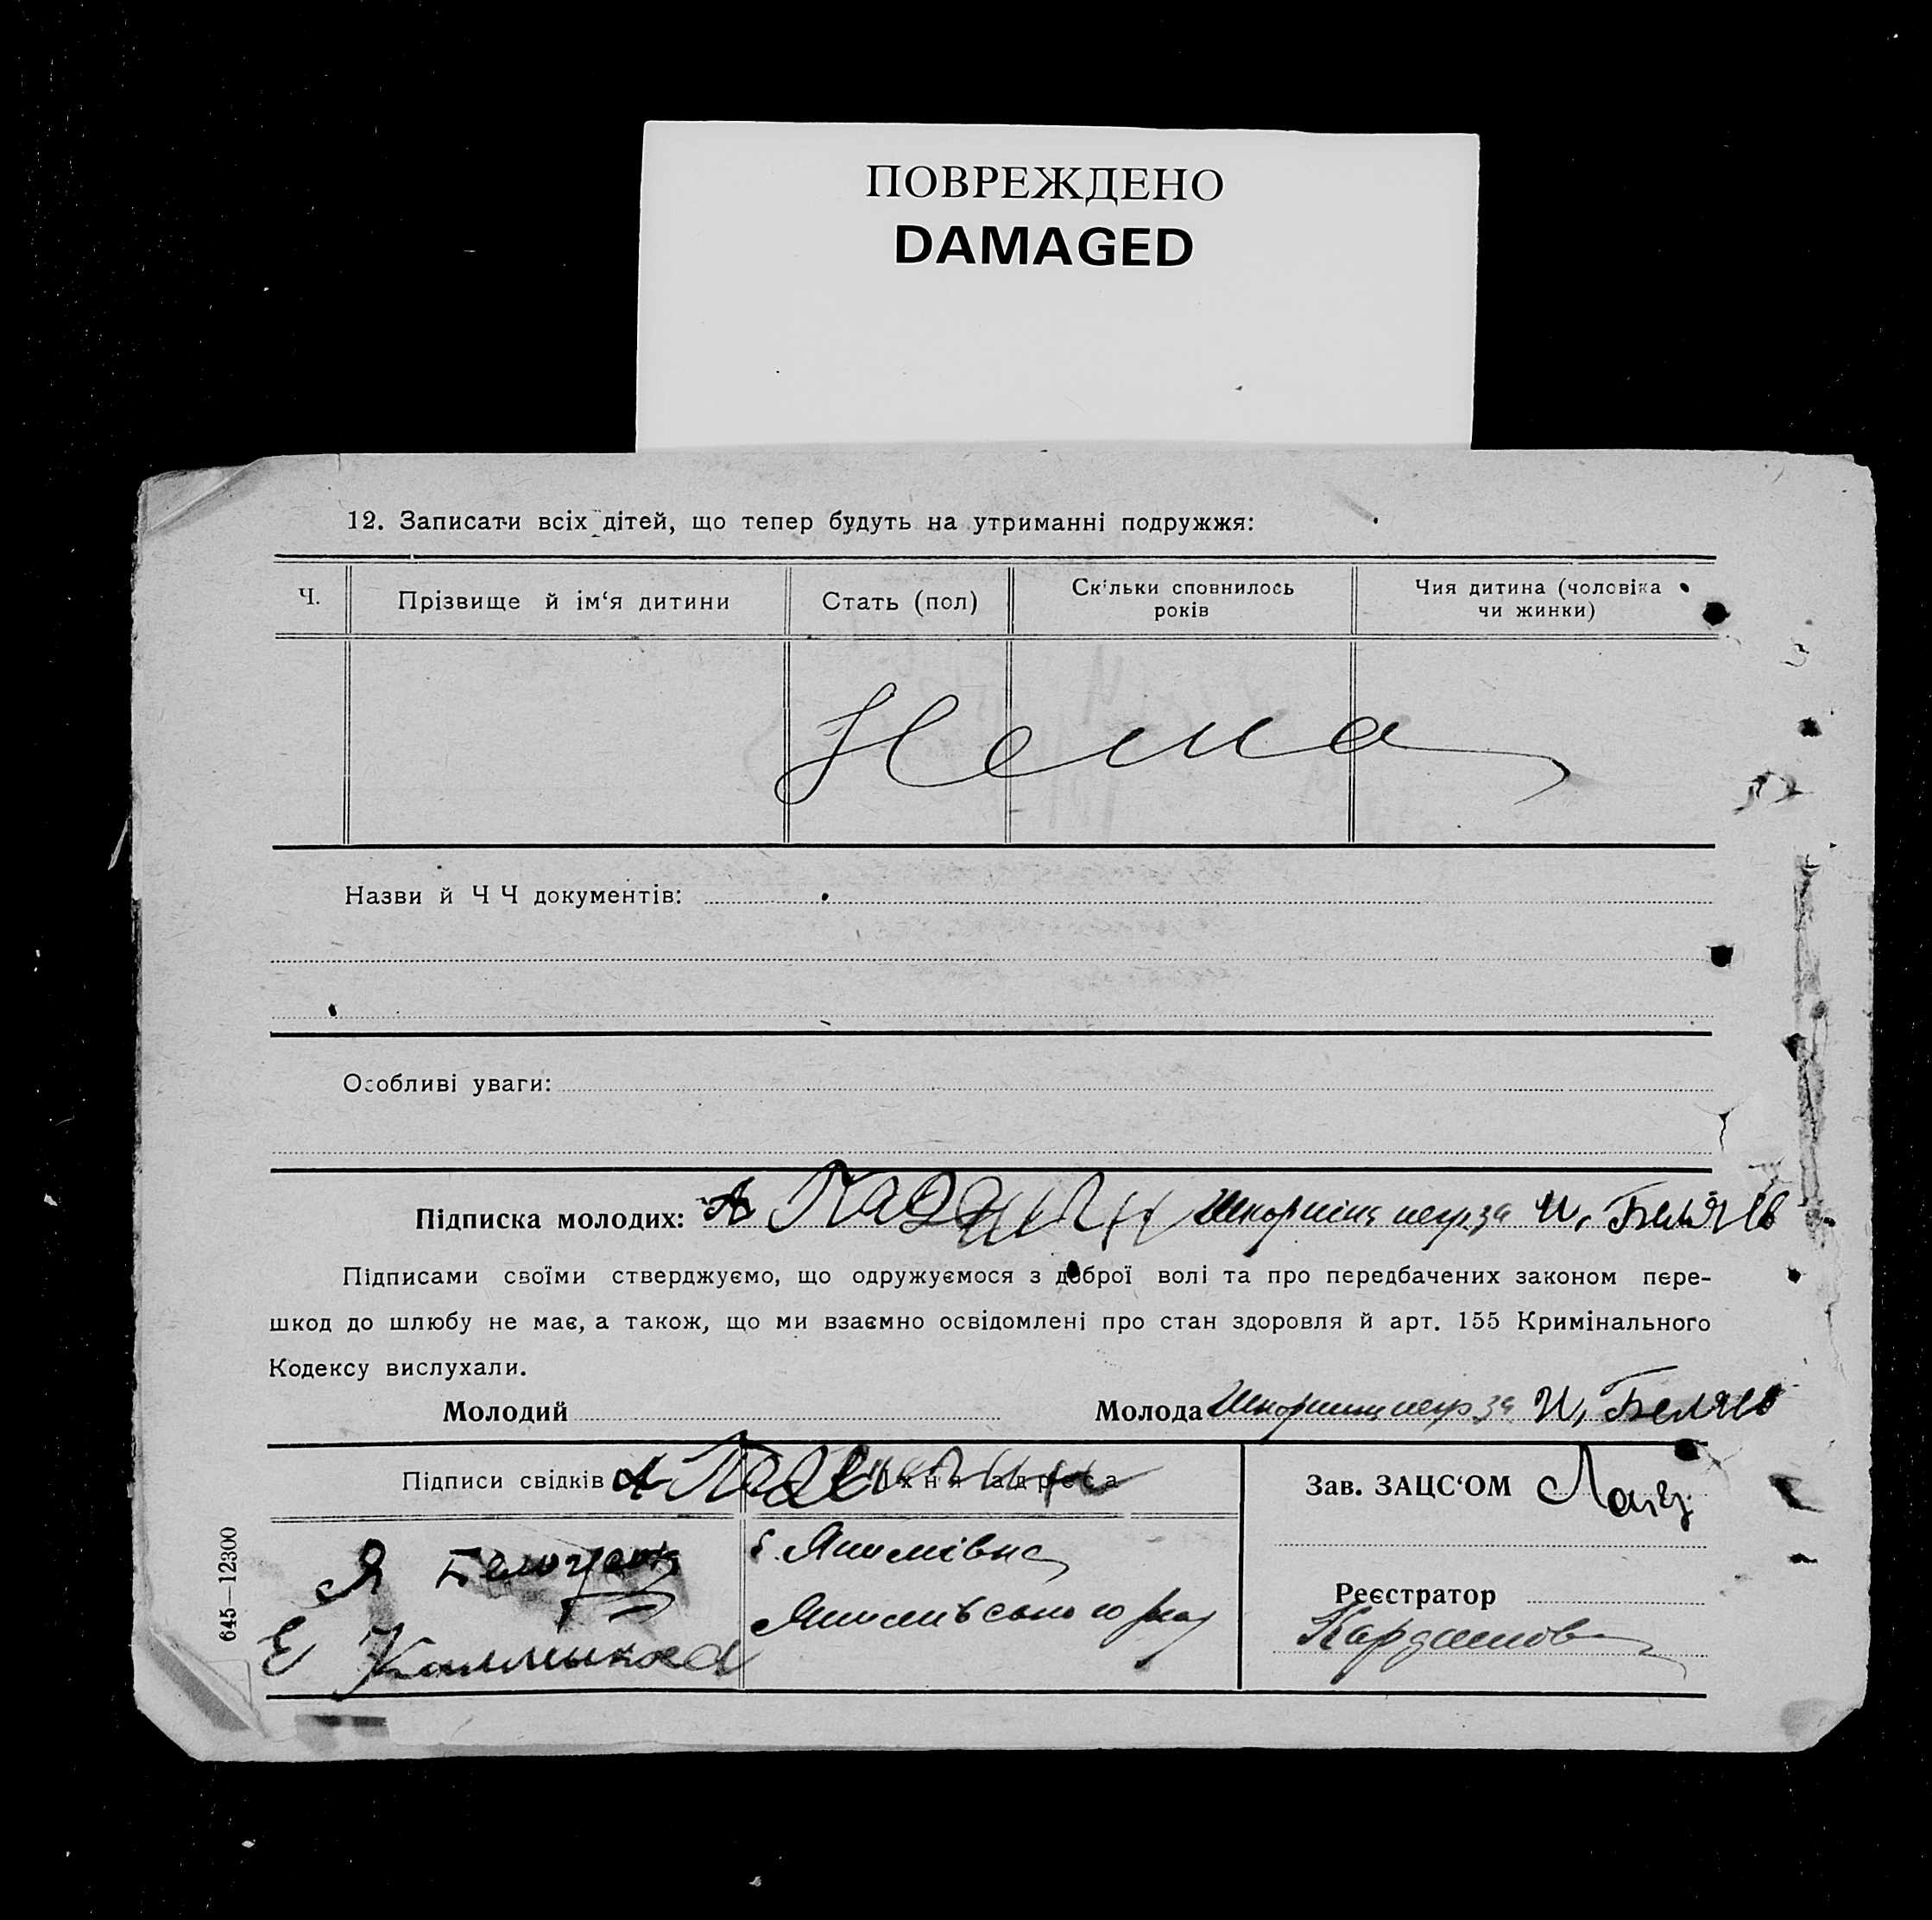 ПОВРЕЖДЕНО
DAMAGED
12. Записати всіх дітей, що тепер будуть на утриманні подружжя:
Ч. Прізвище й ім‘я дитини Стать (пол) Скільки сповнилось років Чия дитина (чоловіка чи жинки)
Нема
Назви й Ч Ч документів:
Особливі уваги:
Підписка молодих: А за И. Беляев
Підписами своїми стверджуємо, що одружуємося з доброї волі та про передбачених законом пере-
шкод до шлюбу не має, а також, що ми взаємно освідомлені про стан здоровля й арт. 155 Кримінального
Кодексу вислухали.
Молодий Молода за И, Беляев
Підписи свідків А Їхня адреса Зав. ЗАЦС‘ОМ
Я с. Якимівка
Якимівського рай Реєстратор
Е Калмыков Кардашов
645—12300